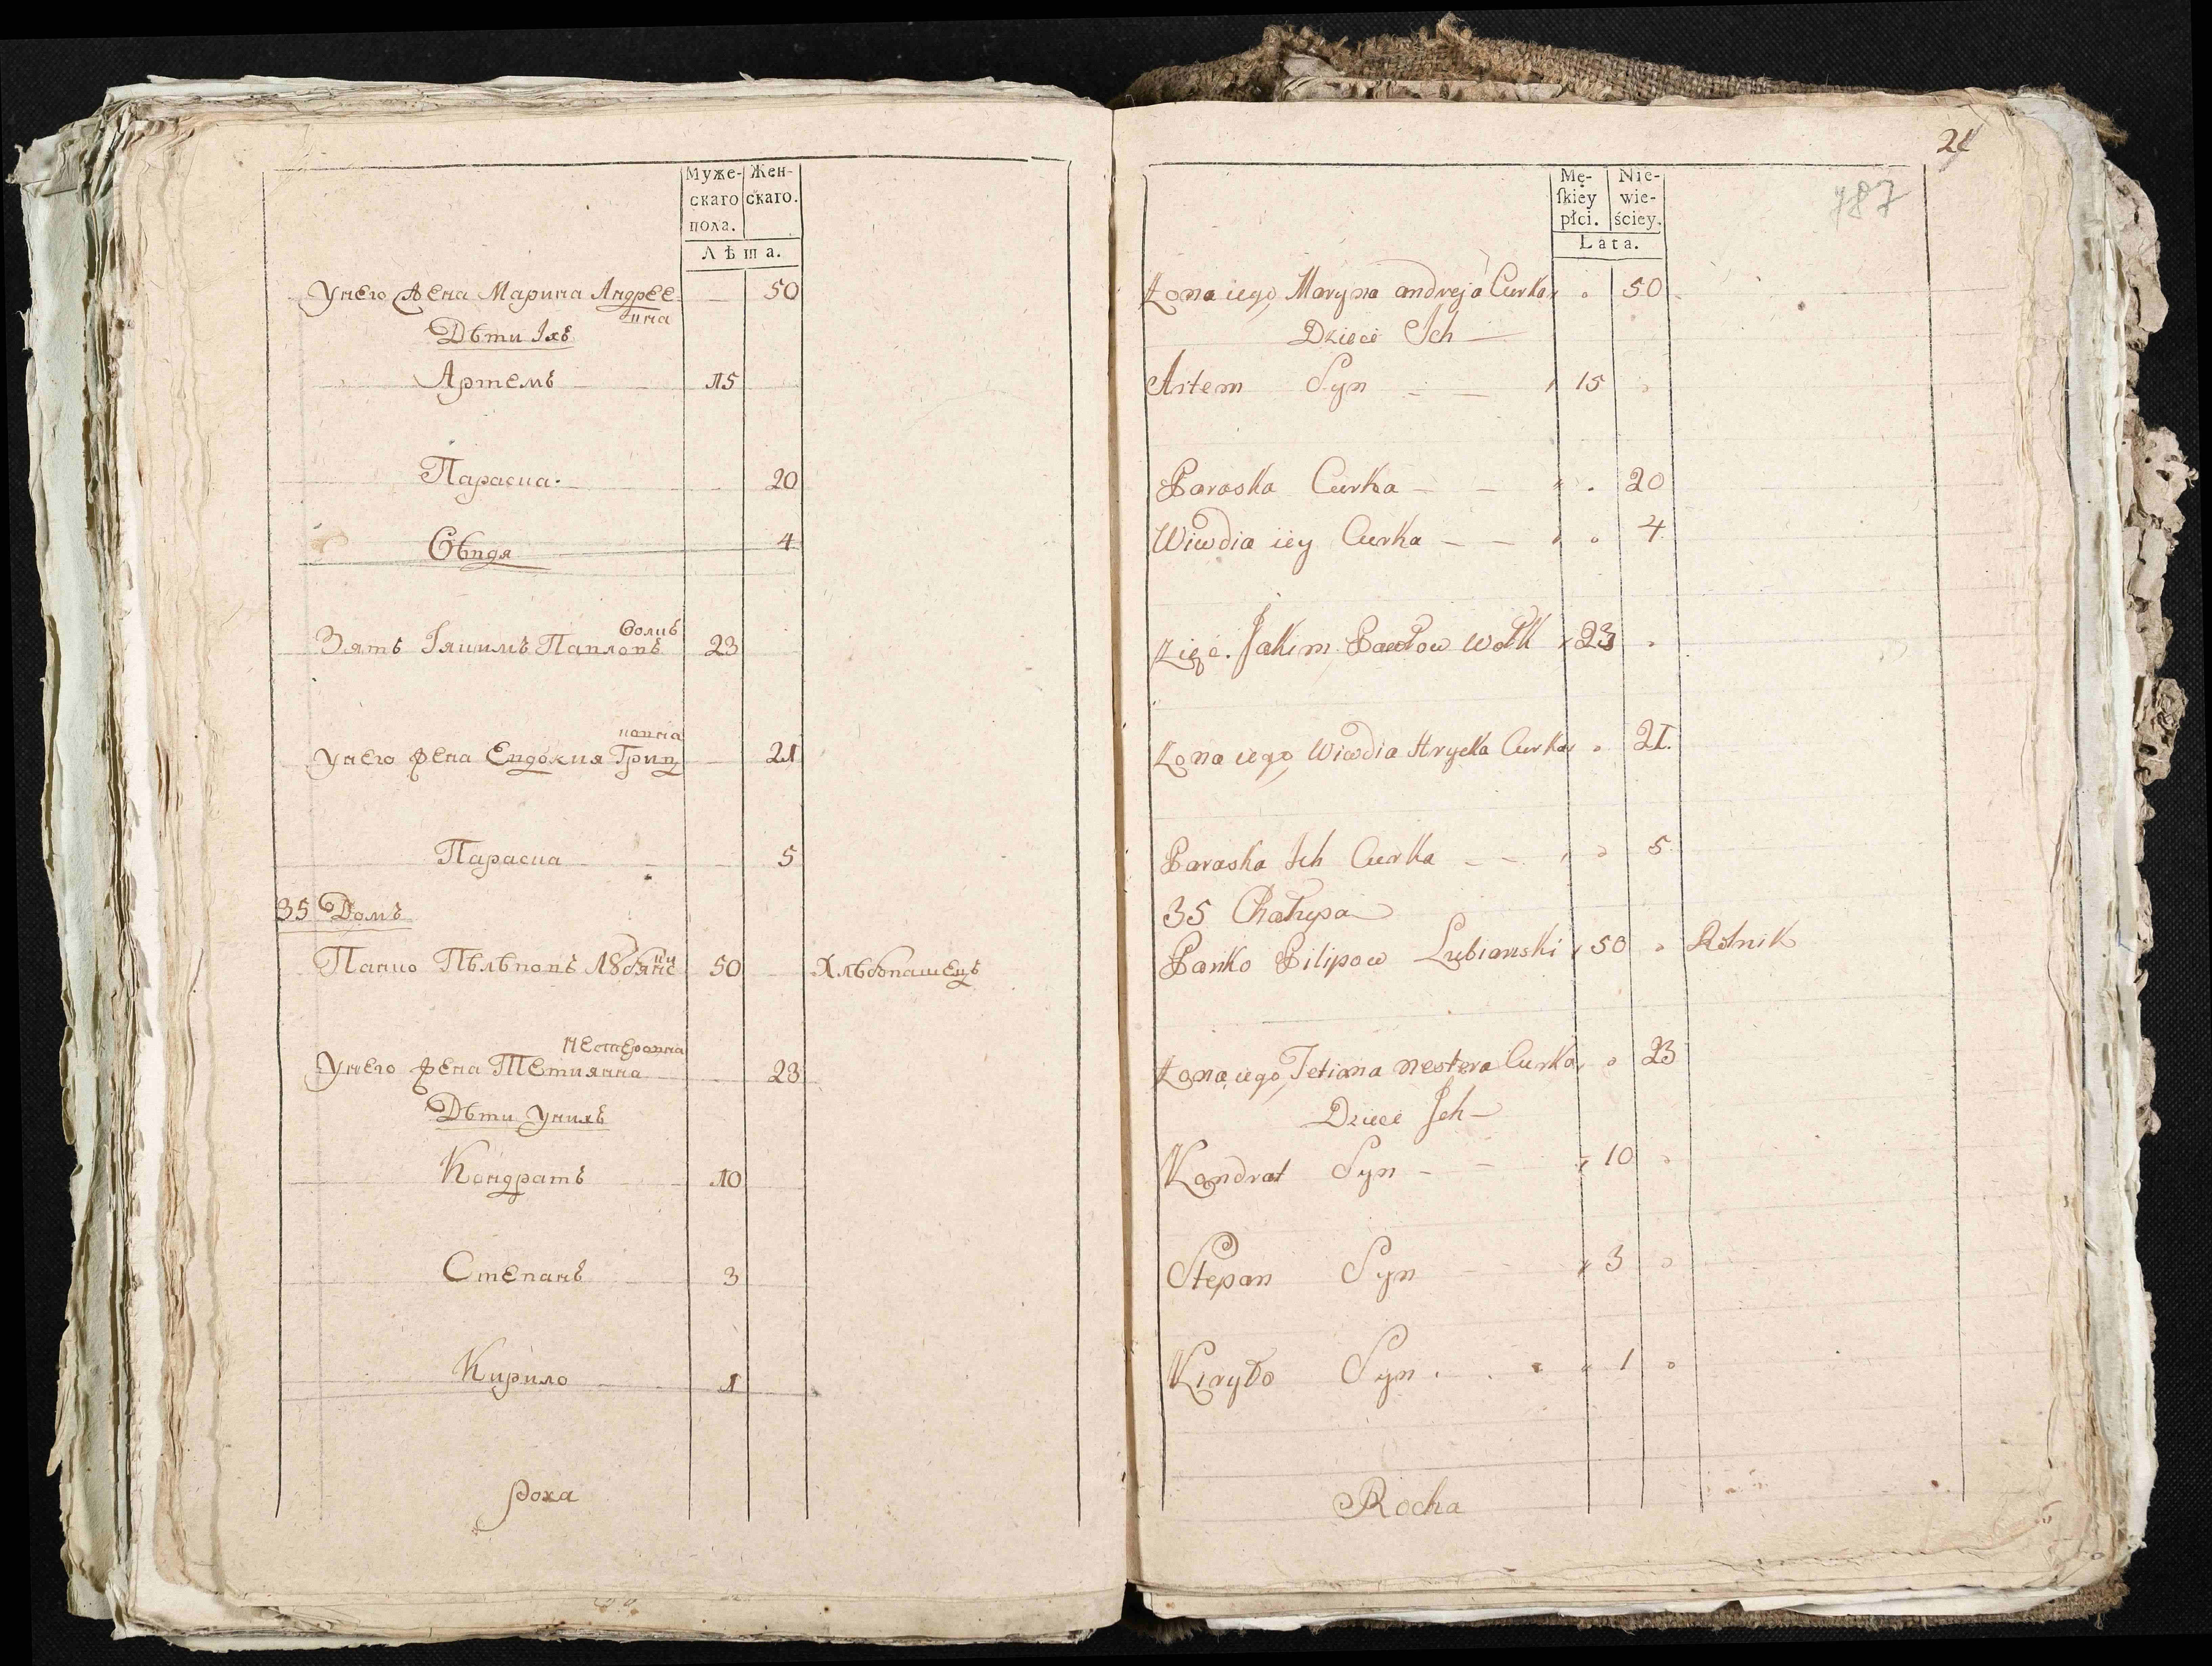 Муже- Жен-
скаго скаго.
пола.
Лѣта.
Унего Жена Марина Андрее 50
вна
Дѣти Ихъ
Артемъ 15
Параска 20
Овѣдя 4
Волкъ
Зять Іякимъ Павловъ 23
ковна
Унего жена Евдокия Гриц 21
Параска 5
35 Домъ
Панко Пѣлѣповъ 50 Хлѣбопашецъ
Нестеровна
Унего жена Тетиянна 23
Дѣти Унихъ
Кондратъ 10
Степанъ 3
Кирило 1
роха
24
787
Mę- Nie-
ſkiey wie-
płci. ściey.
Lata.
Żona iego Maryna andreja Curka 50
Dzieci Ich
Artem Syn 15
Paraska Curka 20
Wiwdia iey Curka 4
Zięć. Jakim Pawłow Wołk 23
Żona iego Wiwdia Hrycka Curka 21.
Paraska Ich Curka 5
35 Chałupa
Panko Pilipow Lubianski 50 Rolnik
Żona iego Tetiana Nestera Curka 23
Dzieci Ich
Kondrat Syn 10
Stepan Syn 3
Kiryło Syn 1
Rocha